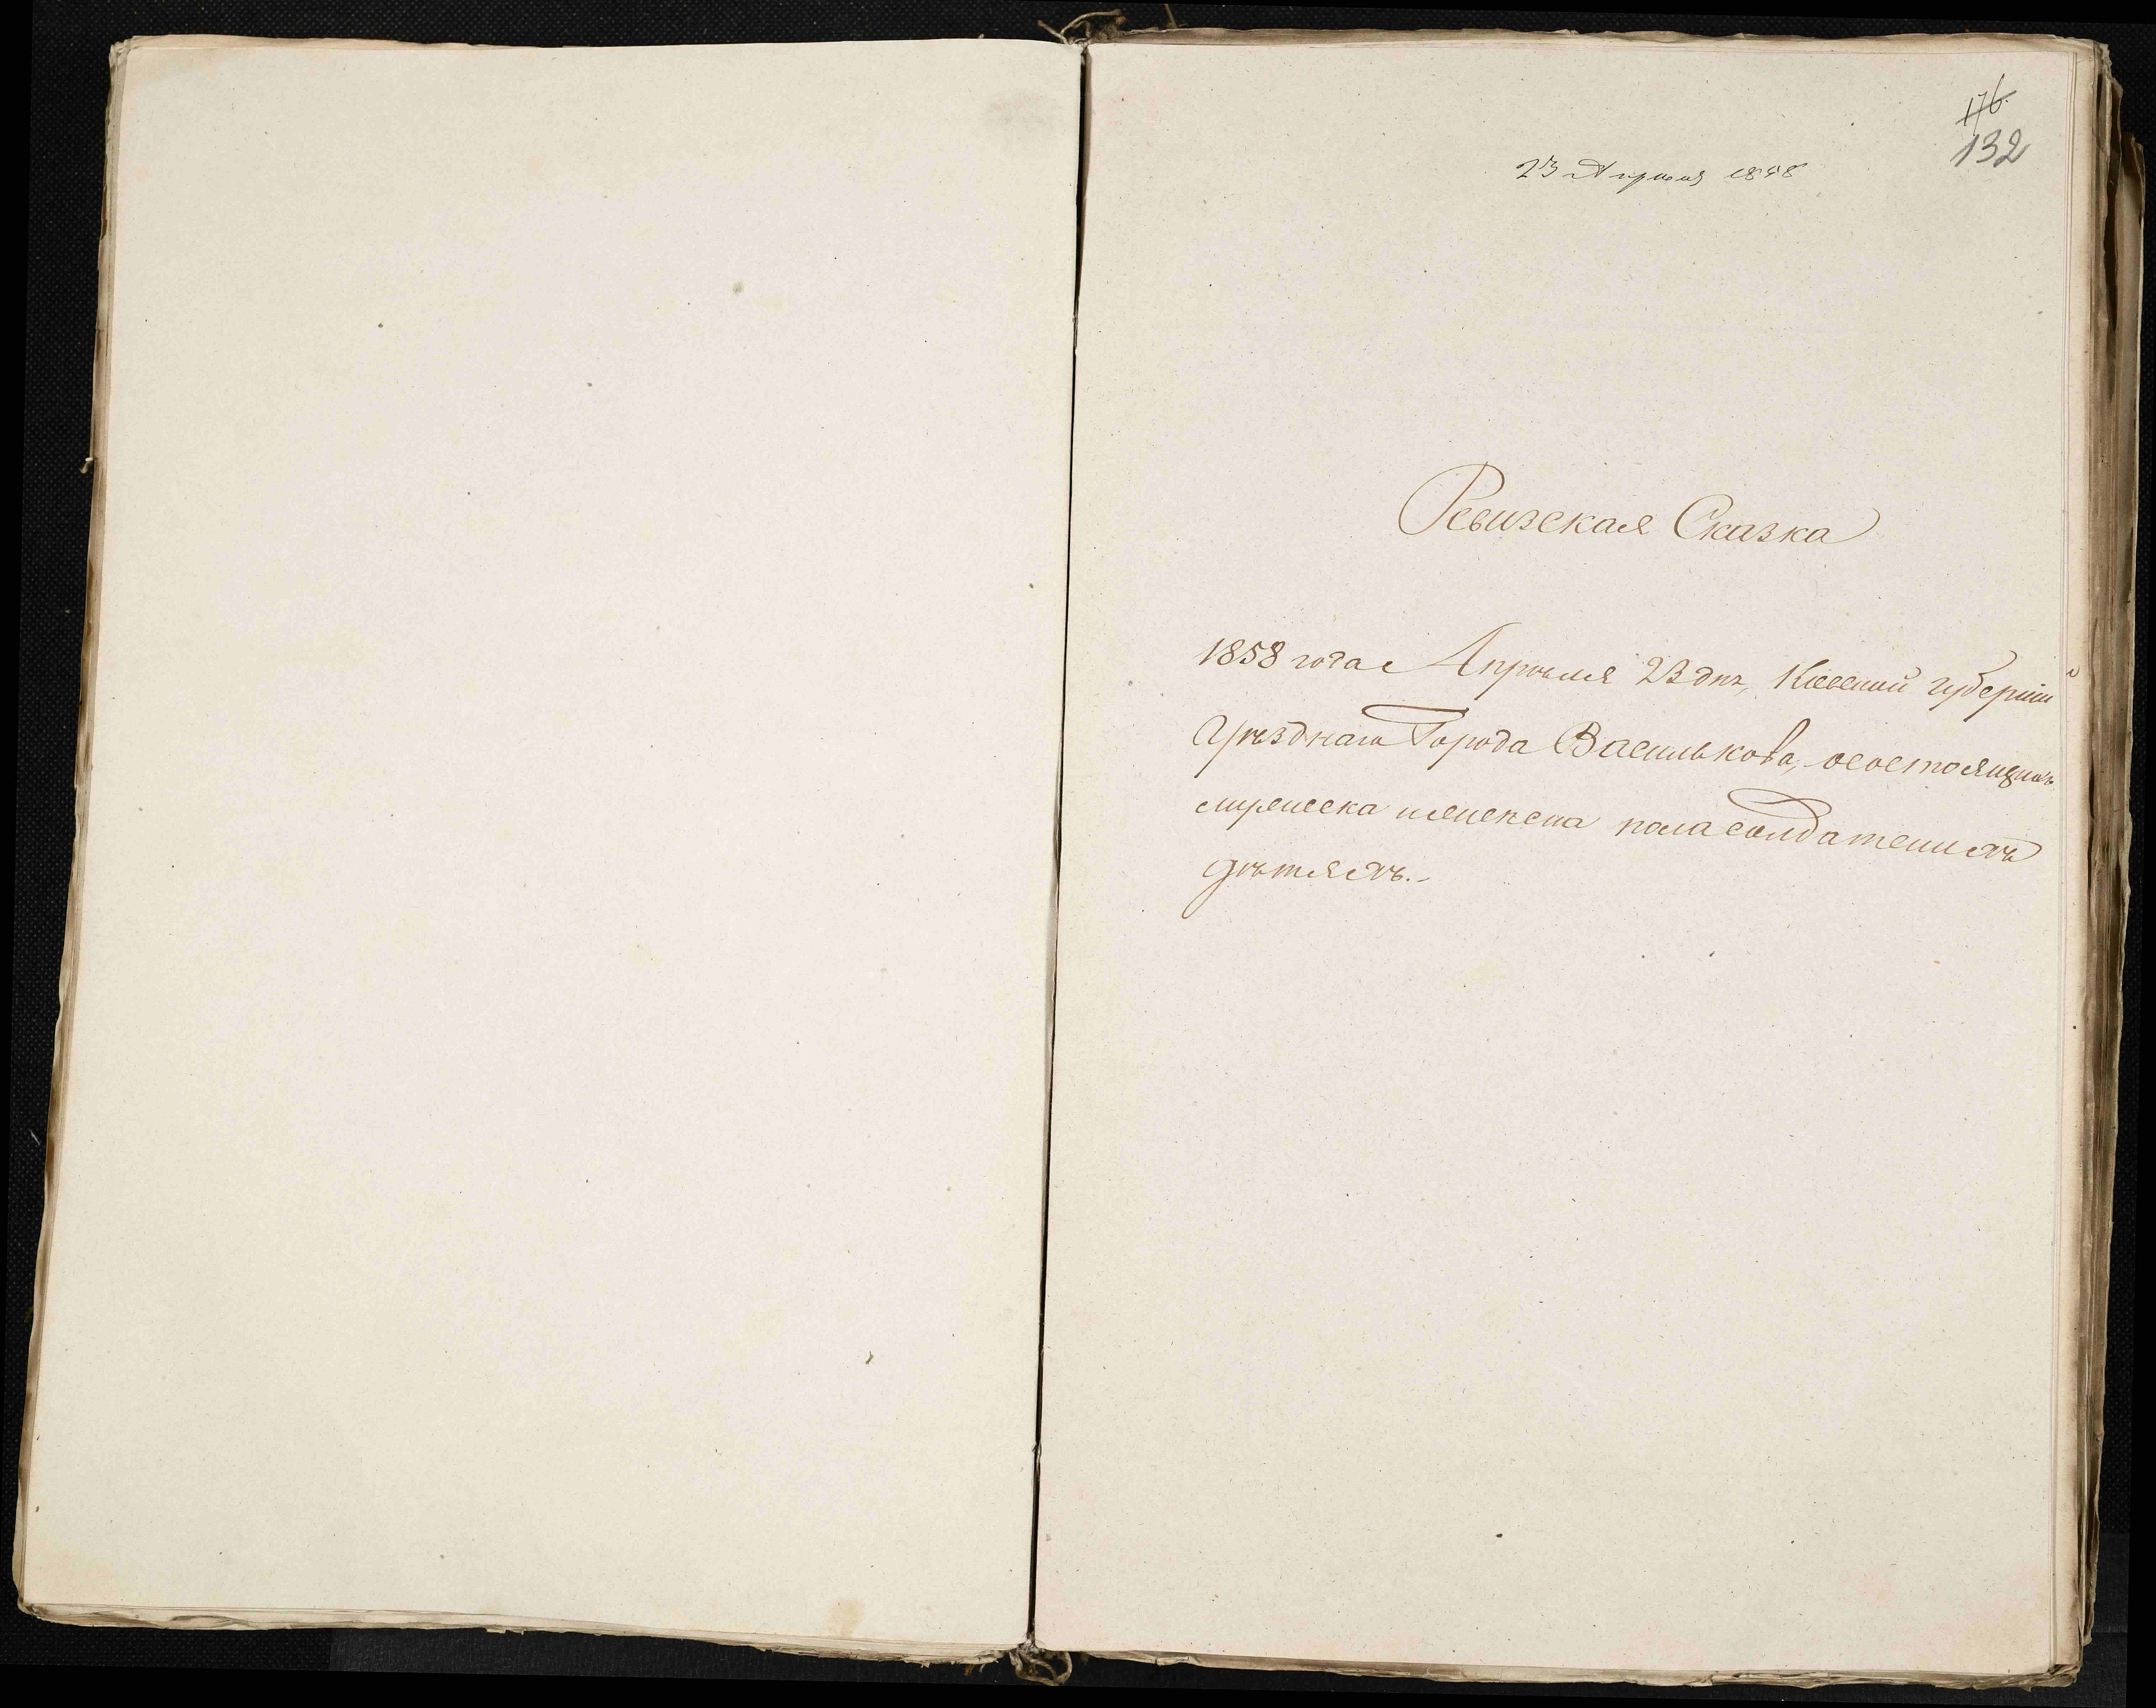 176.
132
23 Апреля 1858
Ревизская Сказка
1858 года Апреля 23 дня, Киевской губернии
Уезднаго Города Василькова, о состоящихъ
мужеска и женска пола солдатскихъ
детяхъ.-